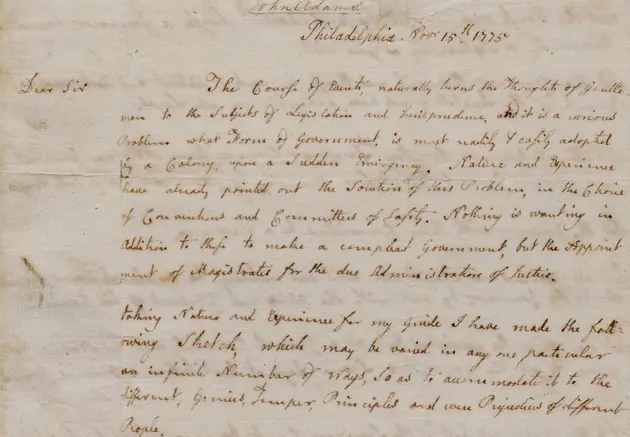 John Adams
Philadelphia Novr 15th 1775
Dear Sir
The Course of Events, naturally turns the Thoughts of Gentle-
men to the Subjects of Legislation and Jurisprudence, and it is a curious
Problem what Form of Government, is most readily & easily adopted
by a Colony, upon a Sudden Emergency. Nature and Experience
have already pointed out the Solution of this Problem, in the Choice
of Conventions and Committees of Safety. Nothing is wanting in
Addition to these to make a compleat Government, but the Appoint
ment of Magistrates for the due Administration of Justice.
taking Nature and Experience for my Guide I have made the foll-
owing Sketch, which may be varied in any one particular
an infinite Number of ways, So as to accommodate it to the
different, Genius, Temper, Principles and even Prejudices of different
People.